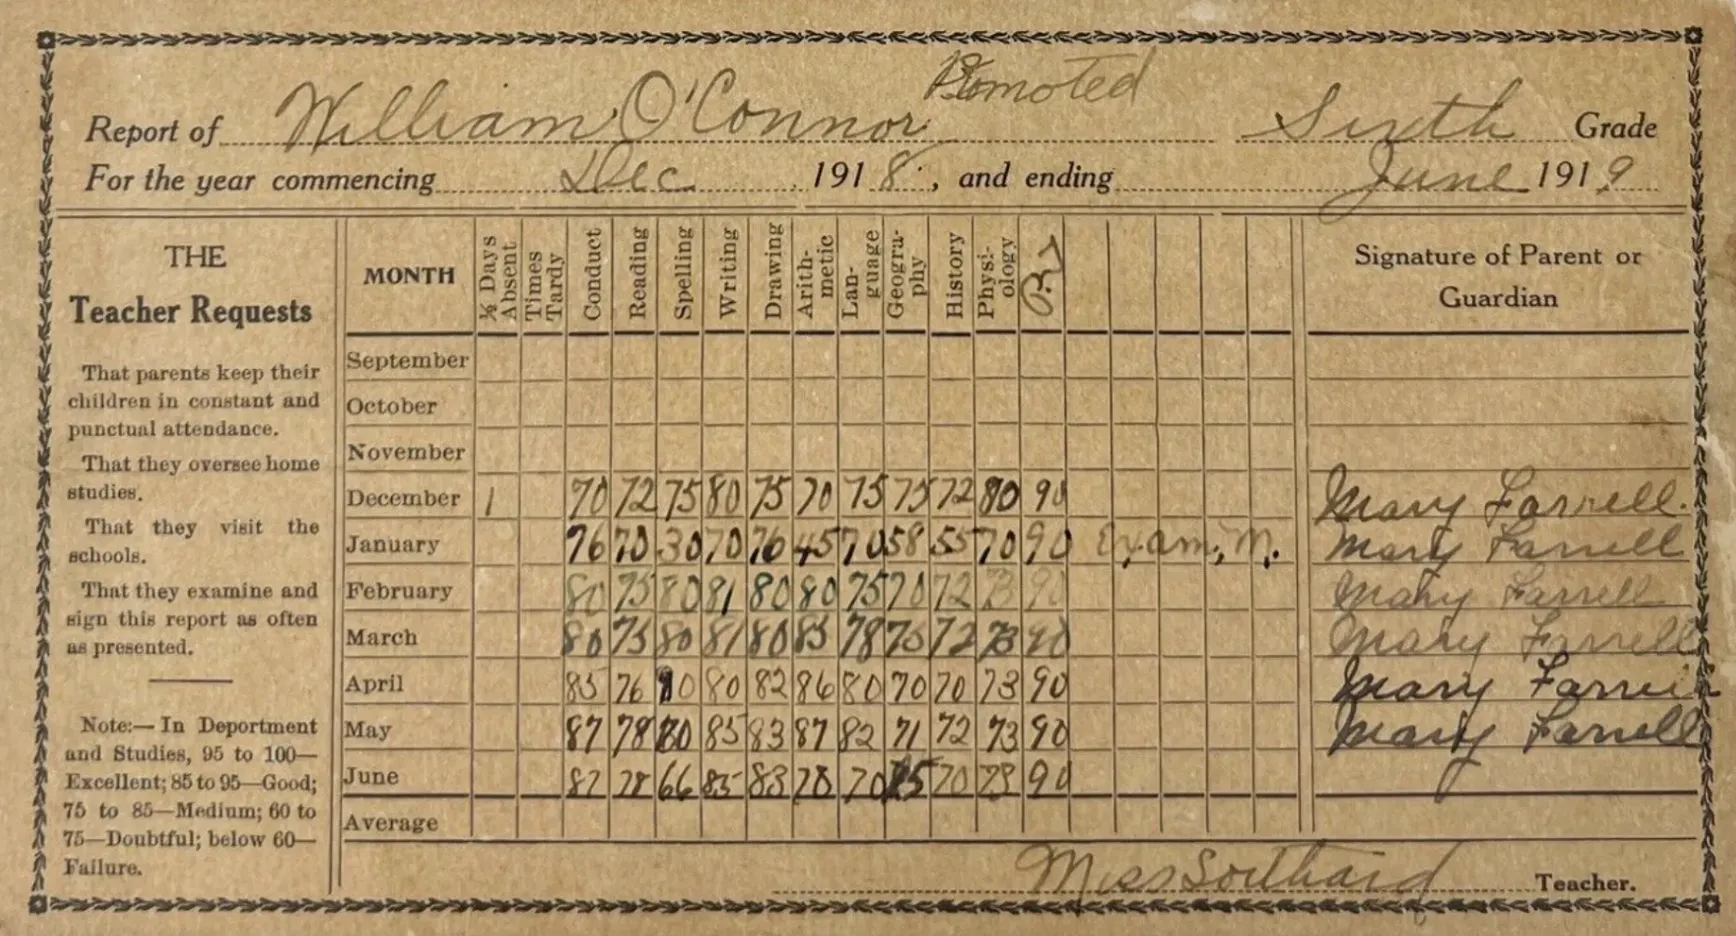 Promoted
Report of William O'Connor Sixth Grade
For the year commencing Dec 1918, and ending June 1919
THE
Teacher Requests
That parents keep their
children in constant and
punctual attendance.
That they oversee home
studies.
That they visit the
schools.
That they examine and
sign this report as often
as presented.
Note:— In Deportment
and Studies, 95 to 100—
Excellent; 85 to 95—Good;
75 to 85—Medium; 60 to
75—Doubtful; below 60—
Failure.
MONTH ½ Days Absent Times Tardy Conduct Reading Spelling Writing Drawing Arith-metic Lan-guage Geogra-phy History Physi-ology Signature of Parent or Guardian
September
October
November
December 1 70 72 75 80 75 70 75 75 72 80 90 Mary Farrell.
January 76 70 30 70 76 45 70 58 55 70 90 Exam, M. Mary Farrell
February 80 75 80 81 80 80 75 70 72 73 90 Mary Farrell
March 80 75 80 81 80 85 78 75 72 73 90 Mary Farrell
April 85 76 80 82 86 80 70 70 73 90 Mary Farrell
May 87 78 80 85 83 87 82 71 72 73 90 Mary Farrell
June 87 78 66 85 83 78 70 75 70 73 90
Average
Miss Southard Teacher.